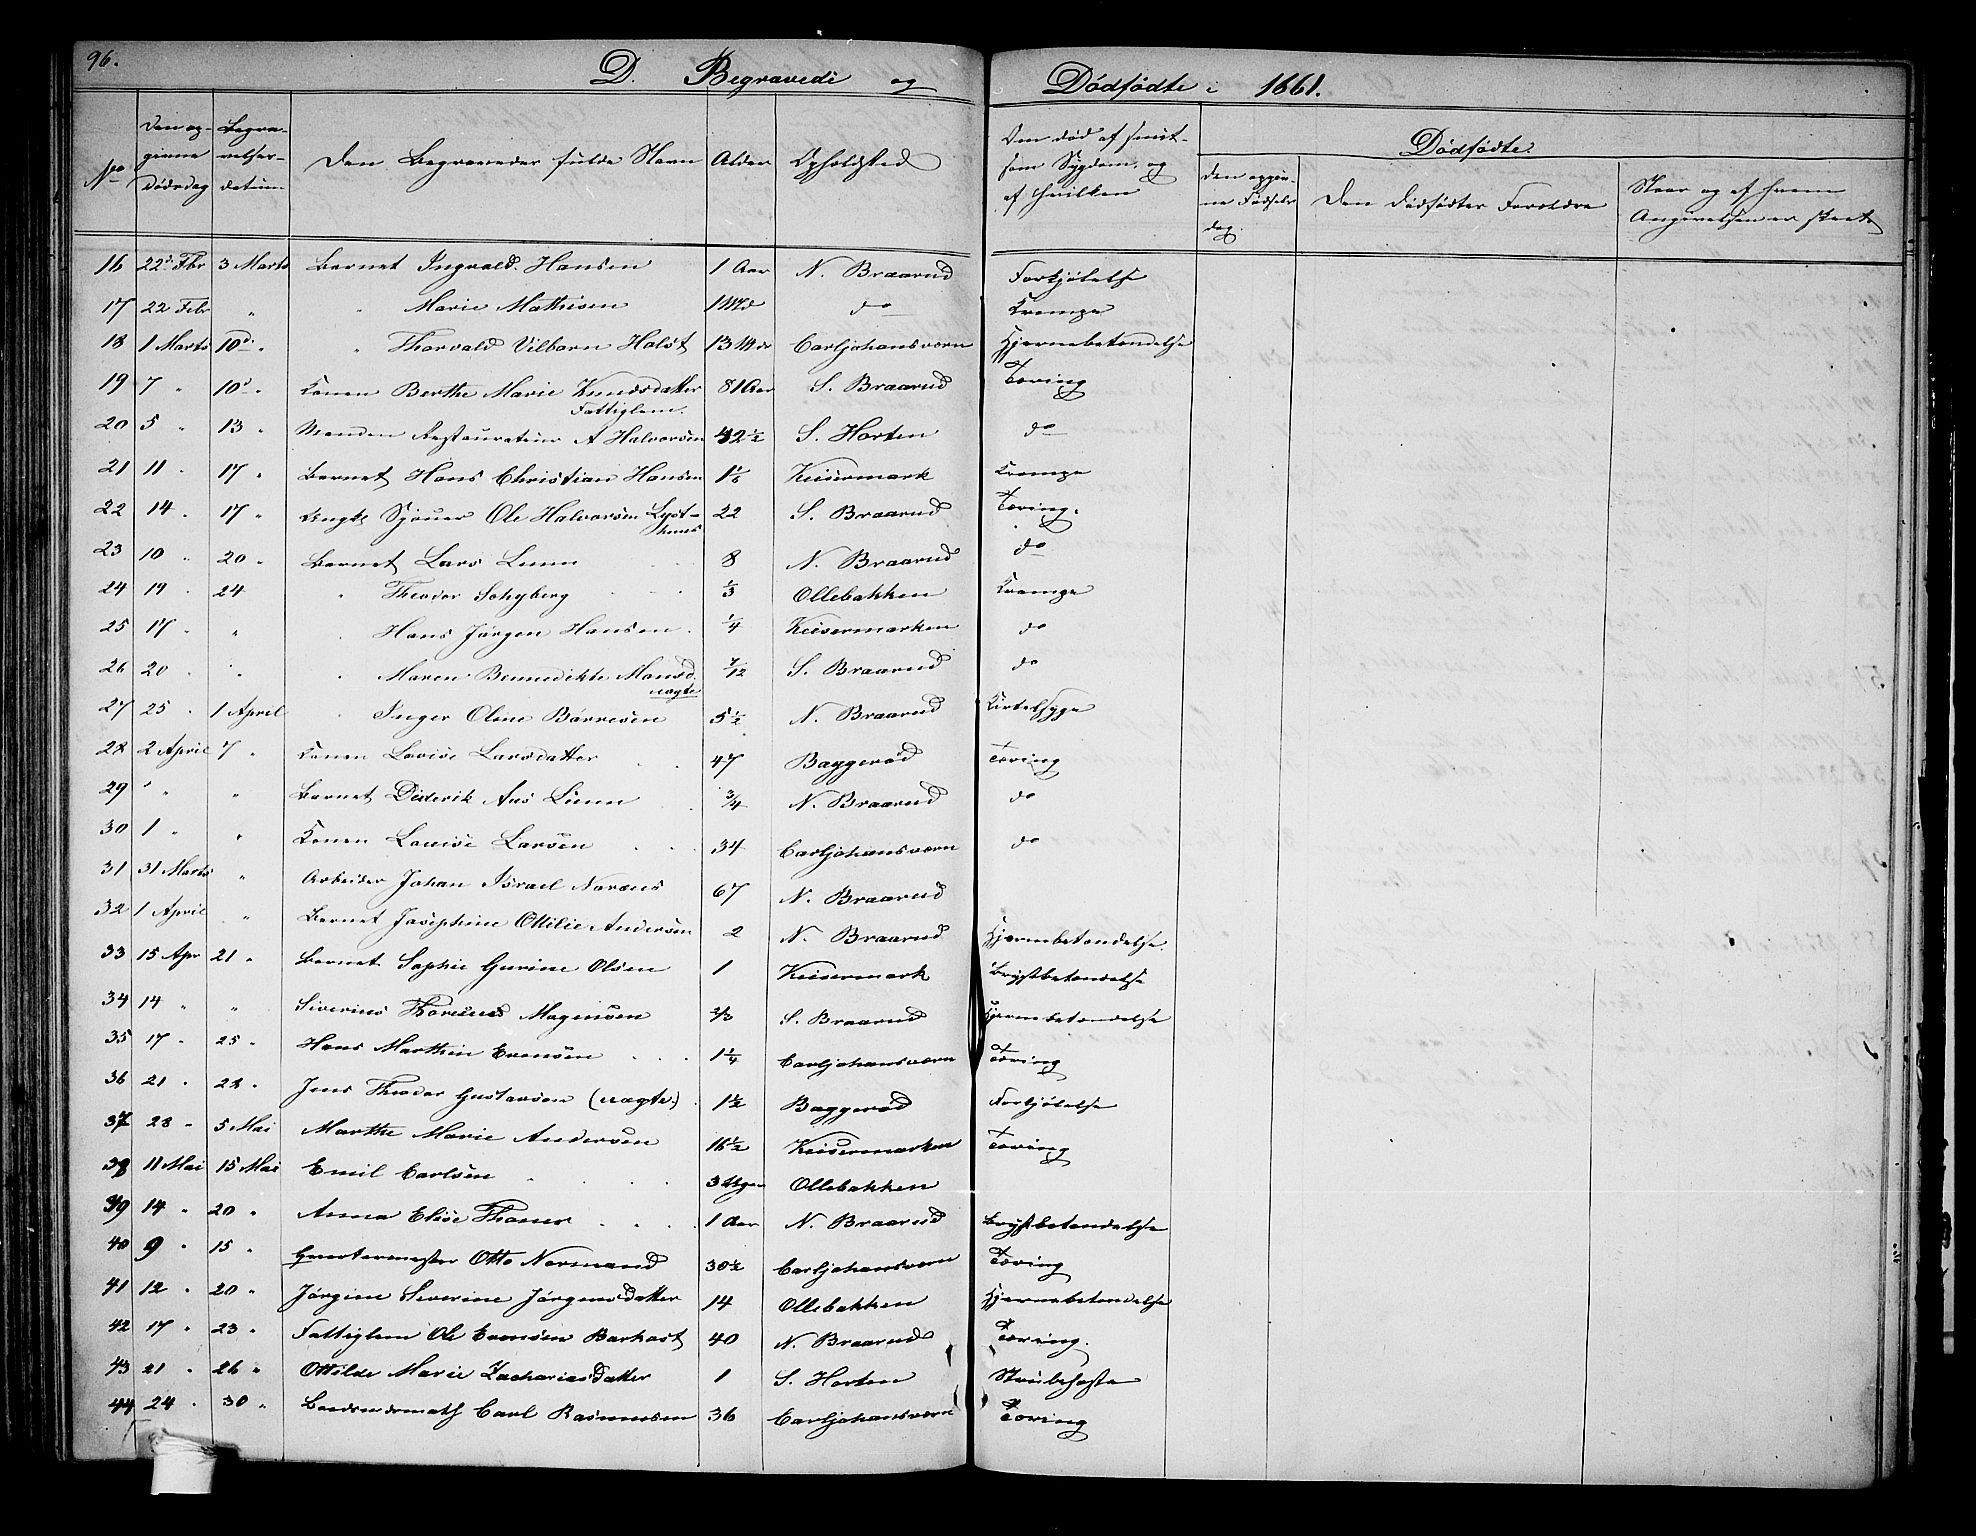 96.
D. Begravede og Dødfødte i 1861.
No Den opgivne Dødsdag Begravelsesdatum Den Begravedes fulde Navn Alder Opholdsted Om død af smitsom Sygdom, og af hvilken Dødfødte.
Den opgivne Fødselsdag. Den Dødfødtes Forældre Naar og af hvem Angivelsen er skeet
16 22d. Fbr 3 Marts Barnet Ingvald Hansen 1 Aar N. Braarud Forkjølelse
17 22 Febr " " Marie Mathisen 1 Md do Krampe
18 1 Marts 10d. " " Thorvald Vilborn Halst 13 Mdr Carljohansværn Hjernebetendelse
19 7 " 10d. " Konen Berthe Marie Knudsdatter 81 Aar S. Braarud Tæring
Fattiglem.
20 5 " 13 " Manden Restaurateur A Halvorsen 42 1/2 S. Horten do
21 11 " 17 " Barnet Hans Christian Hansen 1 1/8 Keisermark Krampe
22 14 " 17 " Ungk. Sjouer Ole Halvorsen Lyst- 22 S. Braarud Tæring.
huus
23 10 " 20 " Barnet Lars Lunn 8 N. Braarud do
24 19 " 24 " Theodor Schyberg 1/3 Ollebakken Krampe
25 17 " " " Hans Jørgen Hansen 1/4 Keisermarken do
26 20 " " Maren Bennedikte Mansd. 7/12 S. Braarud do
uægte
27 25 " 1 April " Inger Oline Børresen 5 1/2 N. Braarud Kirtelsyge
28 2 April 7 " Konen Lovise Larsdatter 47 Baggerød Tæring
29 " " " Barnet Diderik Aas Lunn 3/4 N. Braarud do
30 1 " " Konen Lovise Larsen 34 Carljohansværn do
31 31 Marts " Arbeider Johan Israel Noræus 67 N. Braarud
32 1 April " Barnet Josephine Ottilie Andersen 2 N. Braarud Hjernebetendelse.
33 15 Apr 21 " Barnet Sophie Gurine Olsen 1 Keisermark Brystbetendelse
34 14 " " Siverius Thorinus Magnusen 2/3 S. Braarud Hjernebetendelse
35 17 " 25 " Hans Marthin Evensen 1 1/4 Carljohansværn Tæring
36 21 " 28 " Jens Theodor Gustavsen (uægte) 1 1/2 Baggerød Forkjølelse
37 28 " 5 Mai Marthe Marie Andersen 16 1/2 Keisermarken Tæring
38 11 Mai 15 Mai Emil Carlsen 3 Uger Ollebakken
39 14 " 20 " Anna Elise Thaner 1 Aar N. Braarud Brystbetendelse
40 9 " 15 " Qvartermester Otto Normand 30 1/2 Carljohansværn Tæring
41 12 " 20 " Jørgine Siverine Jørgensdatter 14 Ollebakken Hjernebetendelse
42 17 " 23 " Fattiglem Ole Evensen Barkost 40 N. Braarud Tæring.
43 21 " 26 " Ottilde Marie Zachariasdatter 1 S. Horten Strubehoste
44 24 " 30 " Baadsmandsmath Carl Rasmusen 36 Carljohansværn Tæring